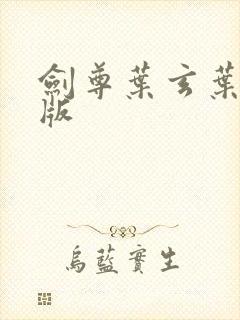 劍尊葉玄葉
版
烏藍實生